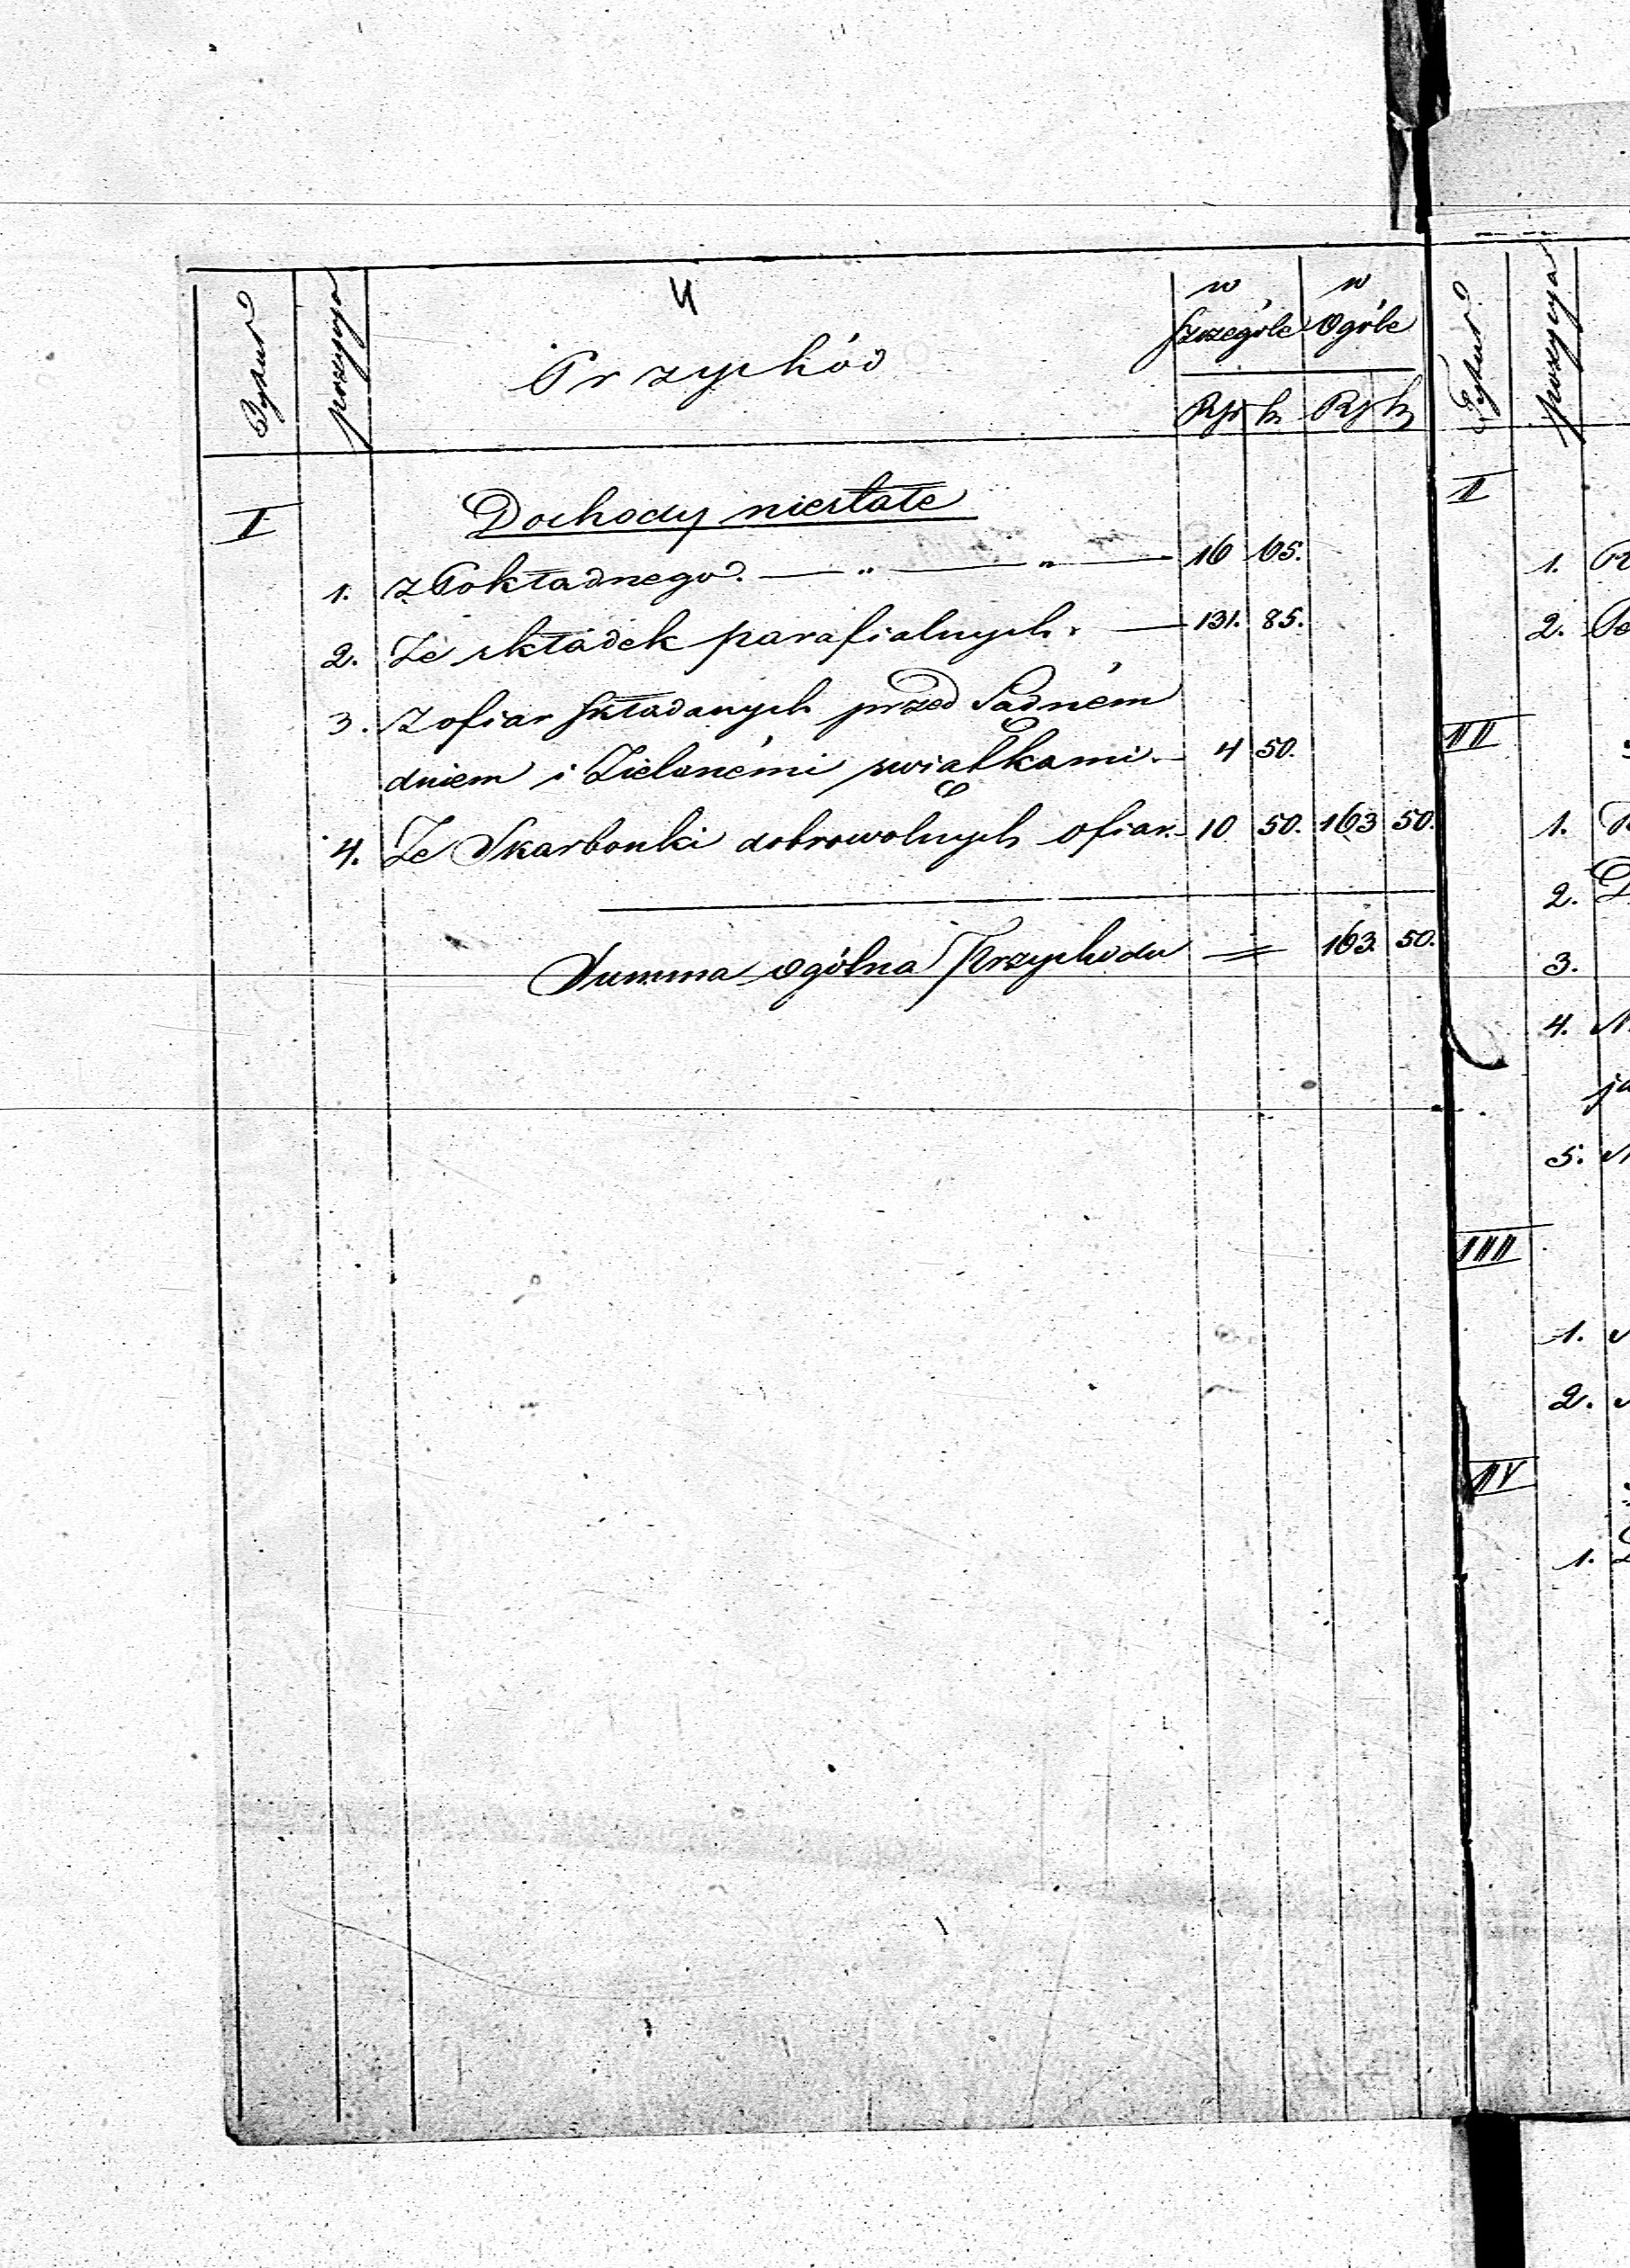 4
Tytuł pozycya Przychód w Szczególe w Ogóle
Rsr k. Rs k
I Dochody niestałe
1. z Pokładnego. — „ — „ — 16 65.
2. Ze składek parafialnych. — 131. 85.
3. z ofiar składanych przed Sądném
dniem i Zielonémi swiątkami. — 4 50.
4. Ze Skarbonki dobrowolnych ofiar. - 10 50. 163 50.
Summa ogólna Przychodu = 163. 50.
Tytuł pozycya
I
1.
2.
II
1.
2.
3.
4.
5.
III
1.
2.
IV
1.